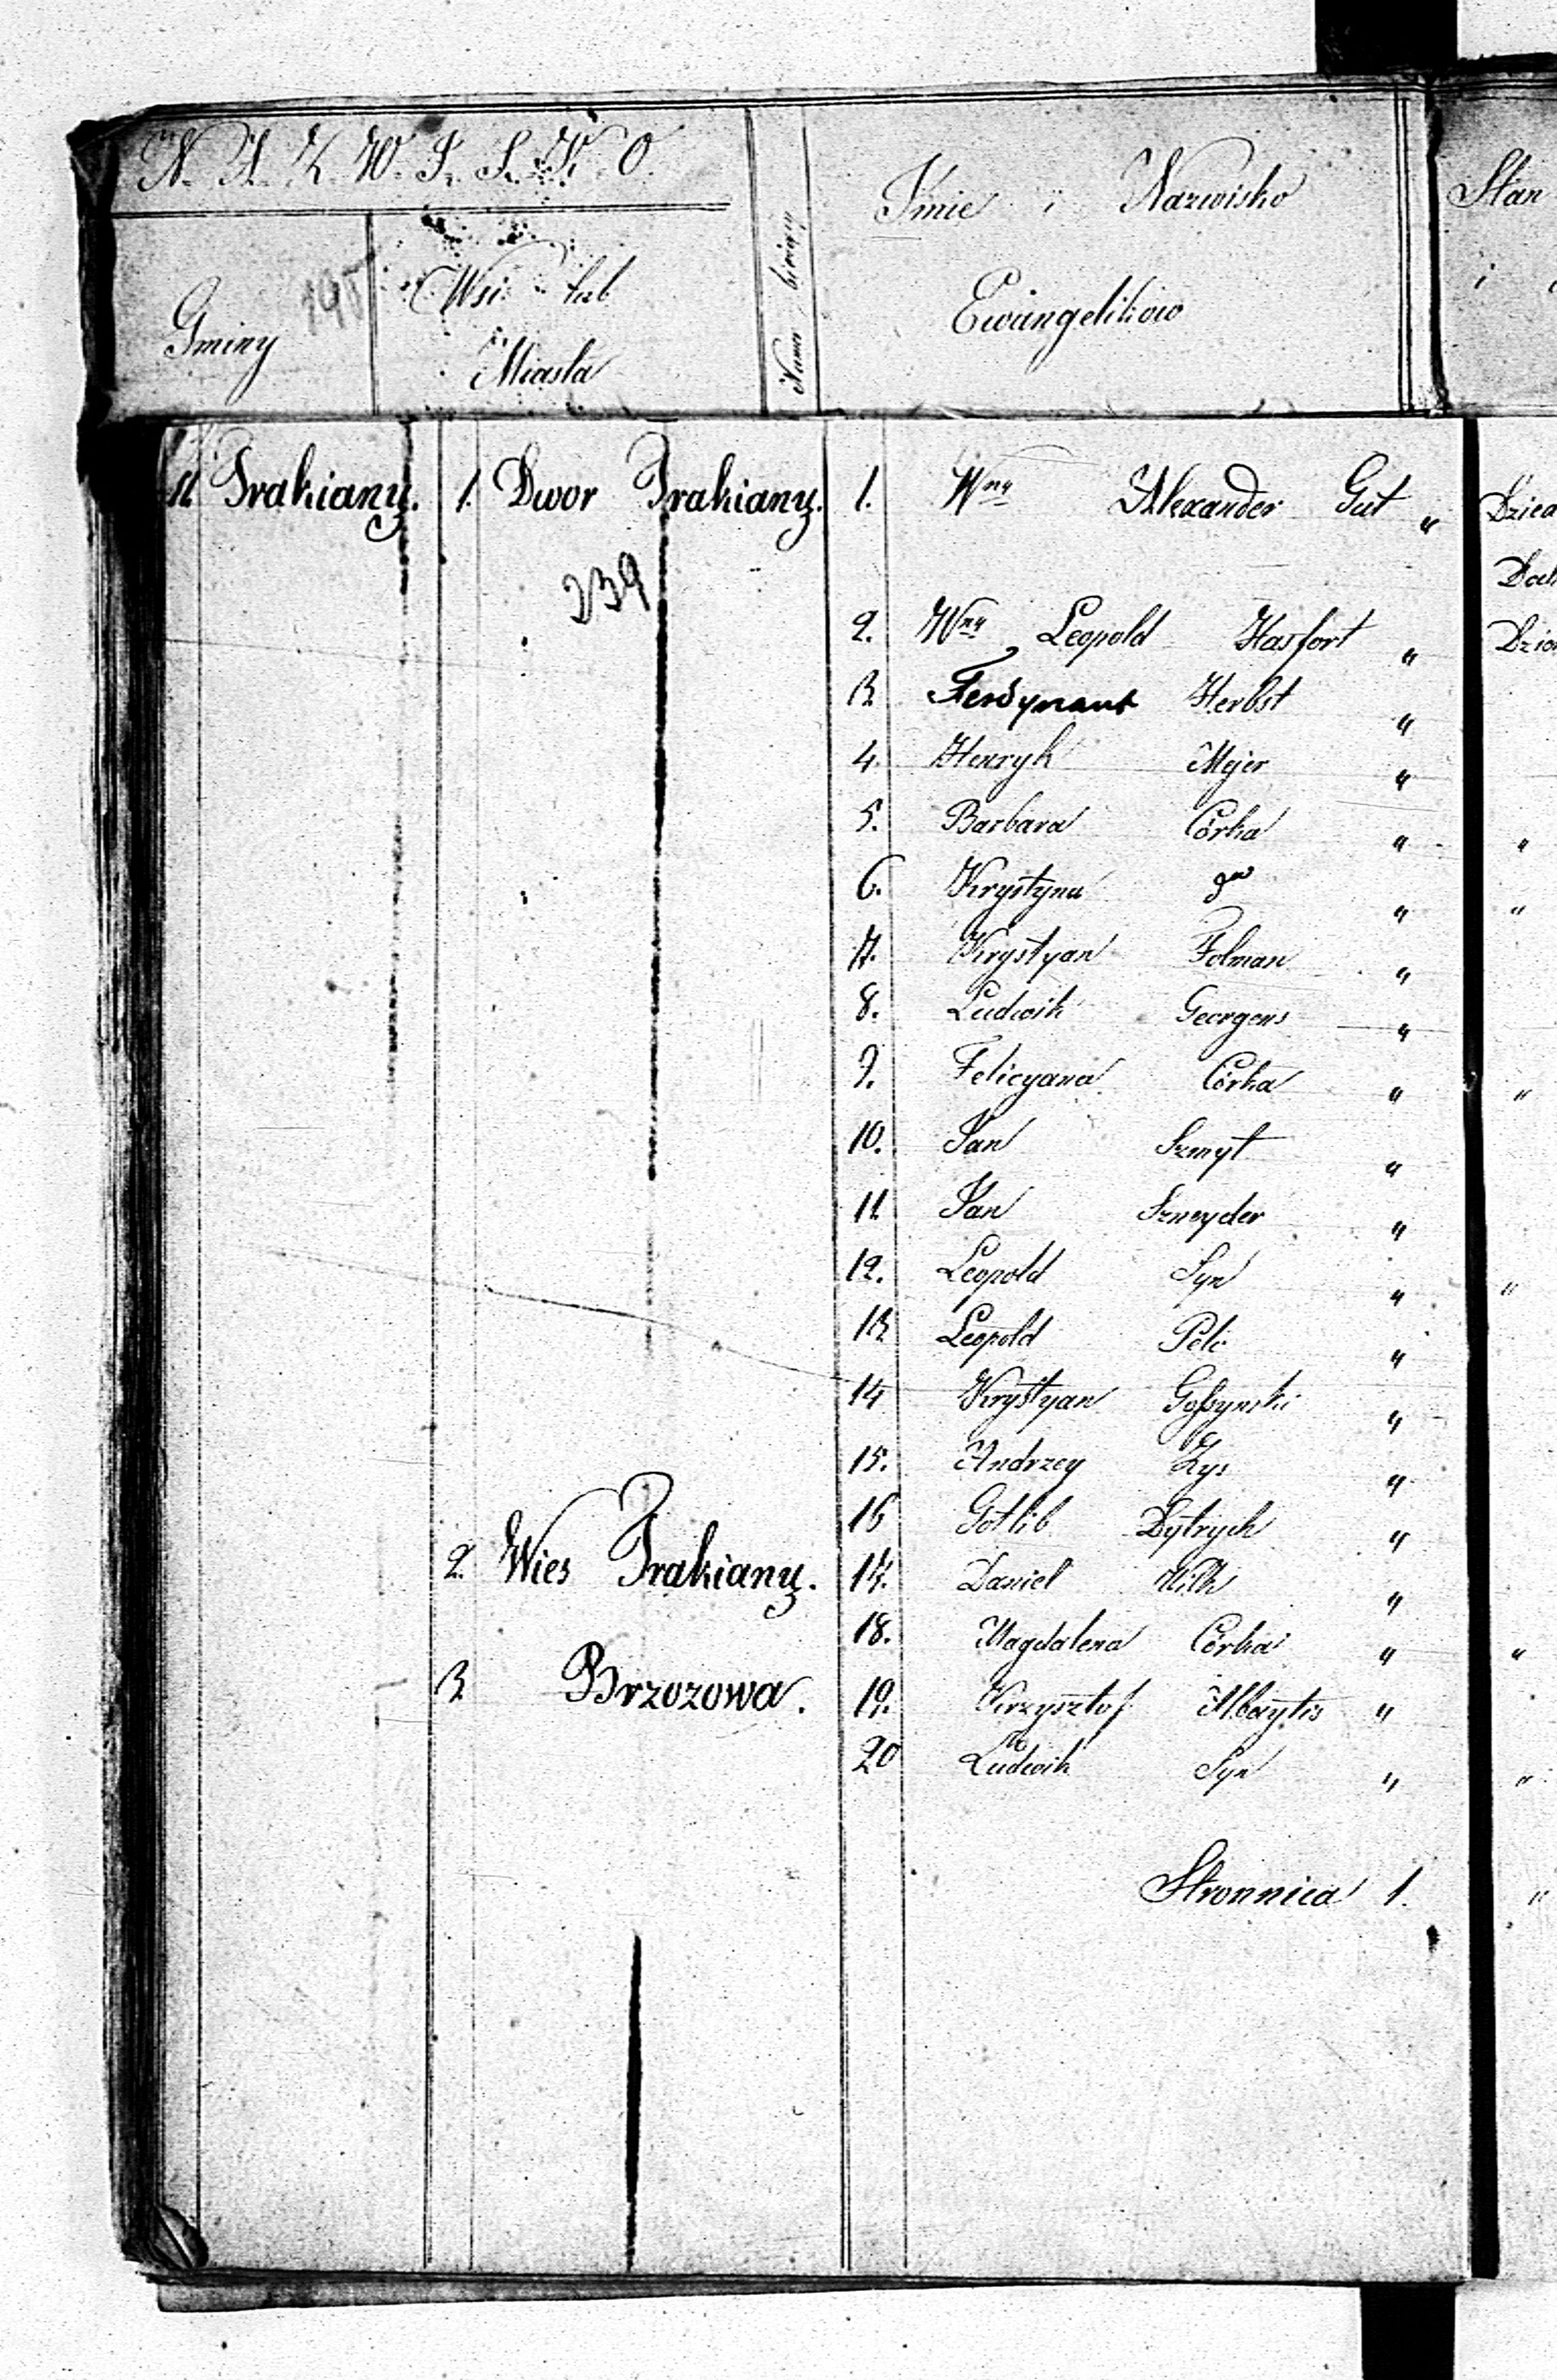 N. A. Z. W. I. S. K. O.
Gminy
Wsi lub
Miasta
Numer bieżący
Jmie i Nazwisko
Ewangelikow
Stan
i
11. Trakiany. 1. Dwor Trakiany. 1. Wny Alexander Gut „
239
2. Wny Leopold Hasfort „
3. Ferdynant Herbst „
4. Henryk Mejer „
5. Barbara Córka „ „
6. Krystyna do „ „
7. Krystyan Folman „
8. Ludwik Georgens „
9. Felicyana Córka „ „
10. Jan Szmyt „
11. Jan Szneyder „
12. Leopold Syn „ „
13. Leopold Pelc „
14. Krystyan Gossynski „
15. Andrzey Zys „
16. Gotlib Dytrych „
2. Wies Trakiany. 17. Daniel Milk „
18. Magdalena Córka „ „
3. Brzozowa. 19. Krzysztof Albaytis „
20 Ludwik Syn „ „
Stronnica 1. „